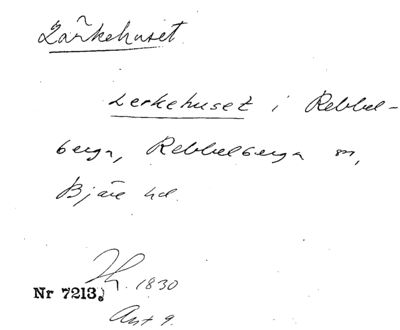 Lärkehuset
Lerkehuset i Rebbel-
berga, Rebbelberga sn,
Bjäre hd.
1830
Nr 7213.
Ant 9.